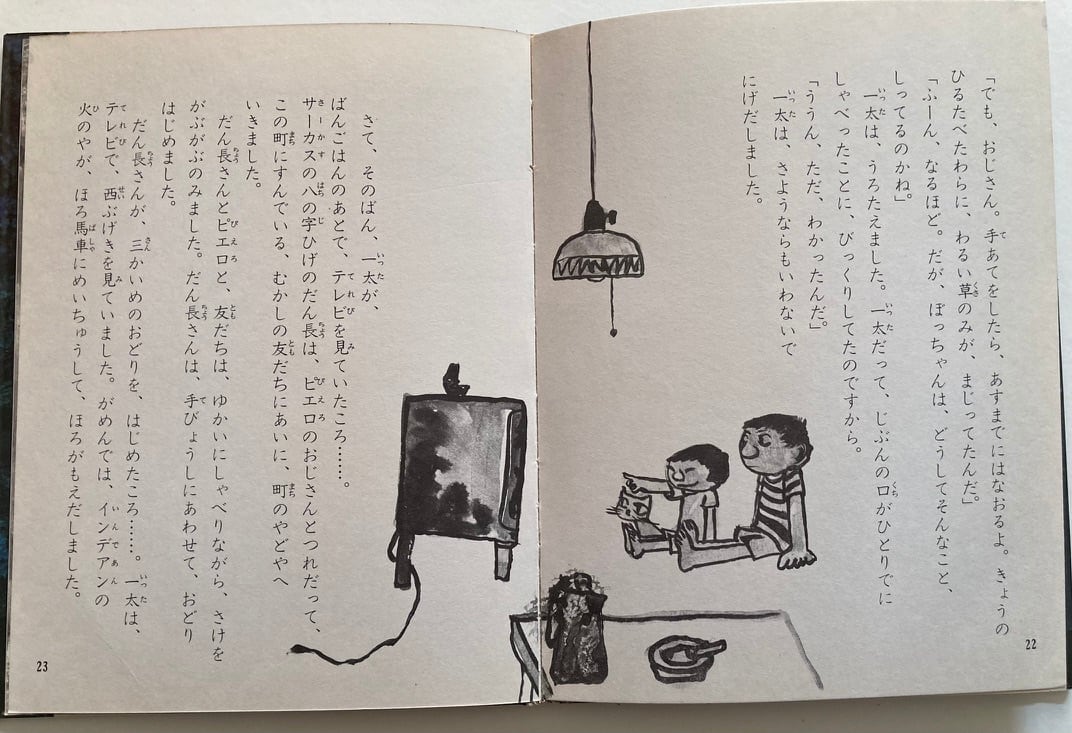 「でも、おじさん。手あてをしたら、あすまでにはなおるよ。きょうの
ひるたべたわらに、わるい草のみが、まじってたんだ。」
「ふーん、なるほど。だが、ぼっちゃんは、どうしてそんなこと、
しってるのかね」
一太は、うろたえました。一太だって、じぶんの口がひとりでに
しゃべったことに、びっくりしてたのですから。
「ううん、ただ、わかったんだ。」
一太は、さようならもいわないで
にげだしました。
22
さて、そのばん、一太が、
ばんごはんのあとで、テレビを見ていたころ……。
サーカスの八の字ひげのだん長は、ピエロのおじさんとつれだって、
この町にすんでいる、むかしの友だちにあいに、町のやどやへ
いきました。
だん長さんとピエロと、友だちは、ゆかいにしゃべりながら、さけを
がぶがぶのみました。だん長さんは、手びょうしにあわせて、おどり
はじめました。
だん長さんが、三かいめのおどりを、はじめたころ……。一太は、
テレビで、西ぶげきを見ていました。がめんでは、インデアンの
火のやが、ほろ馬車にめいちゅうして、ほろがもえだしました。
23